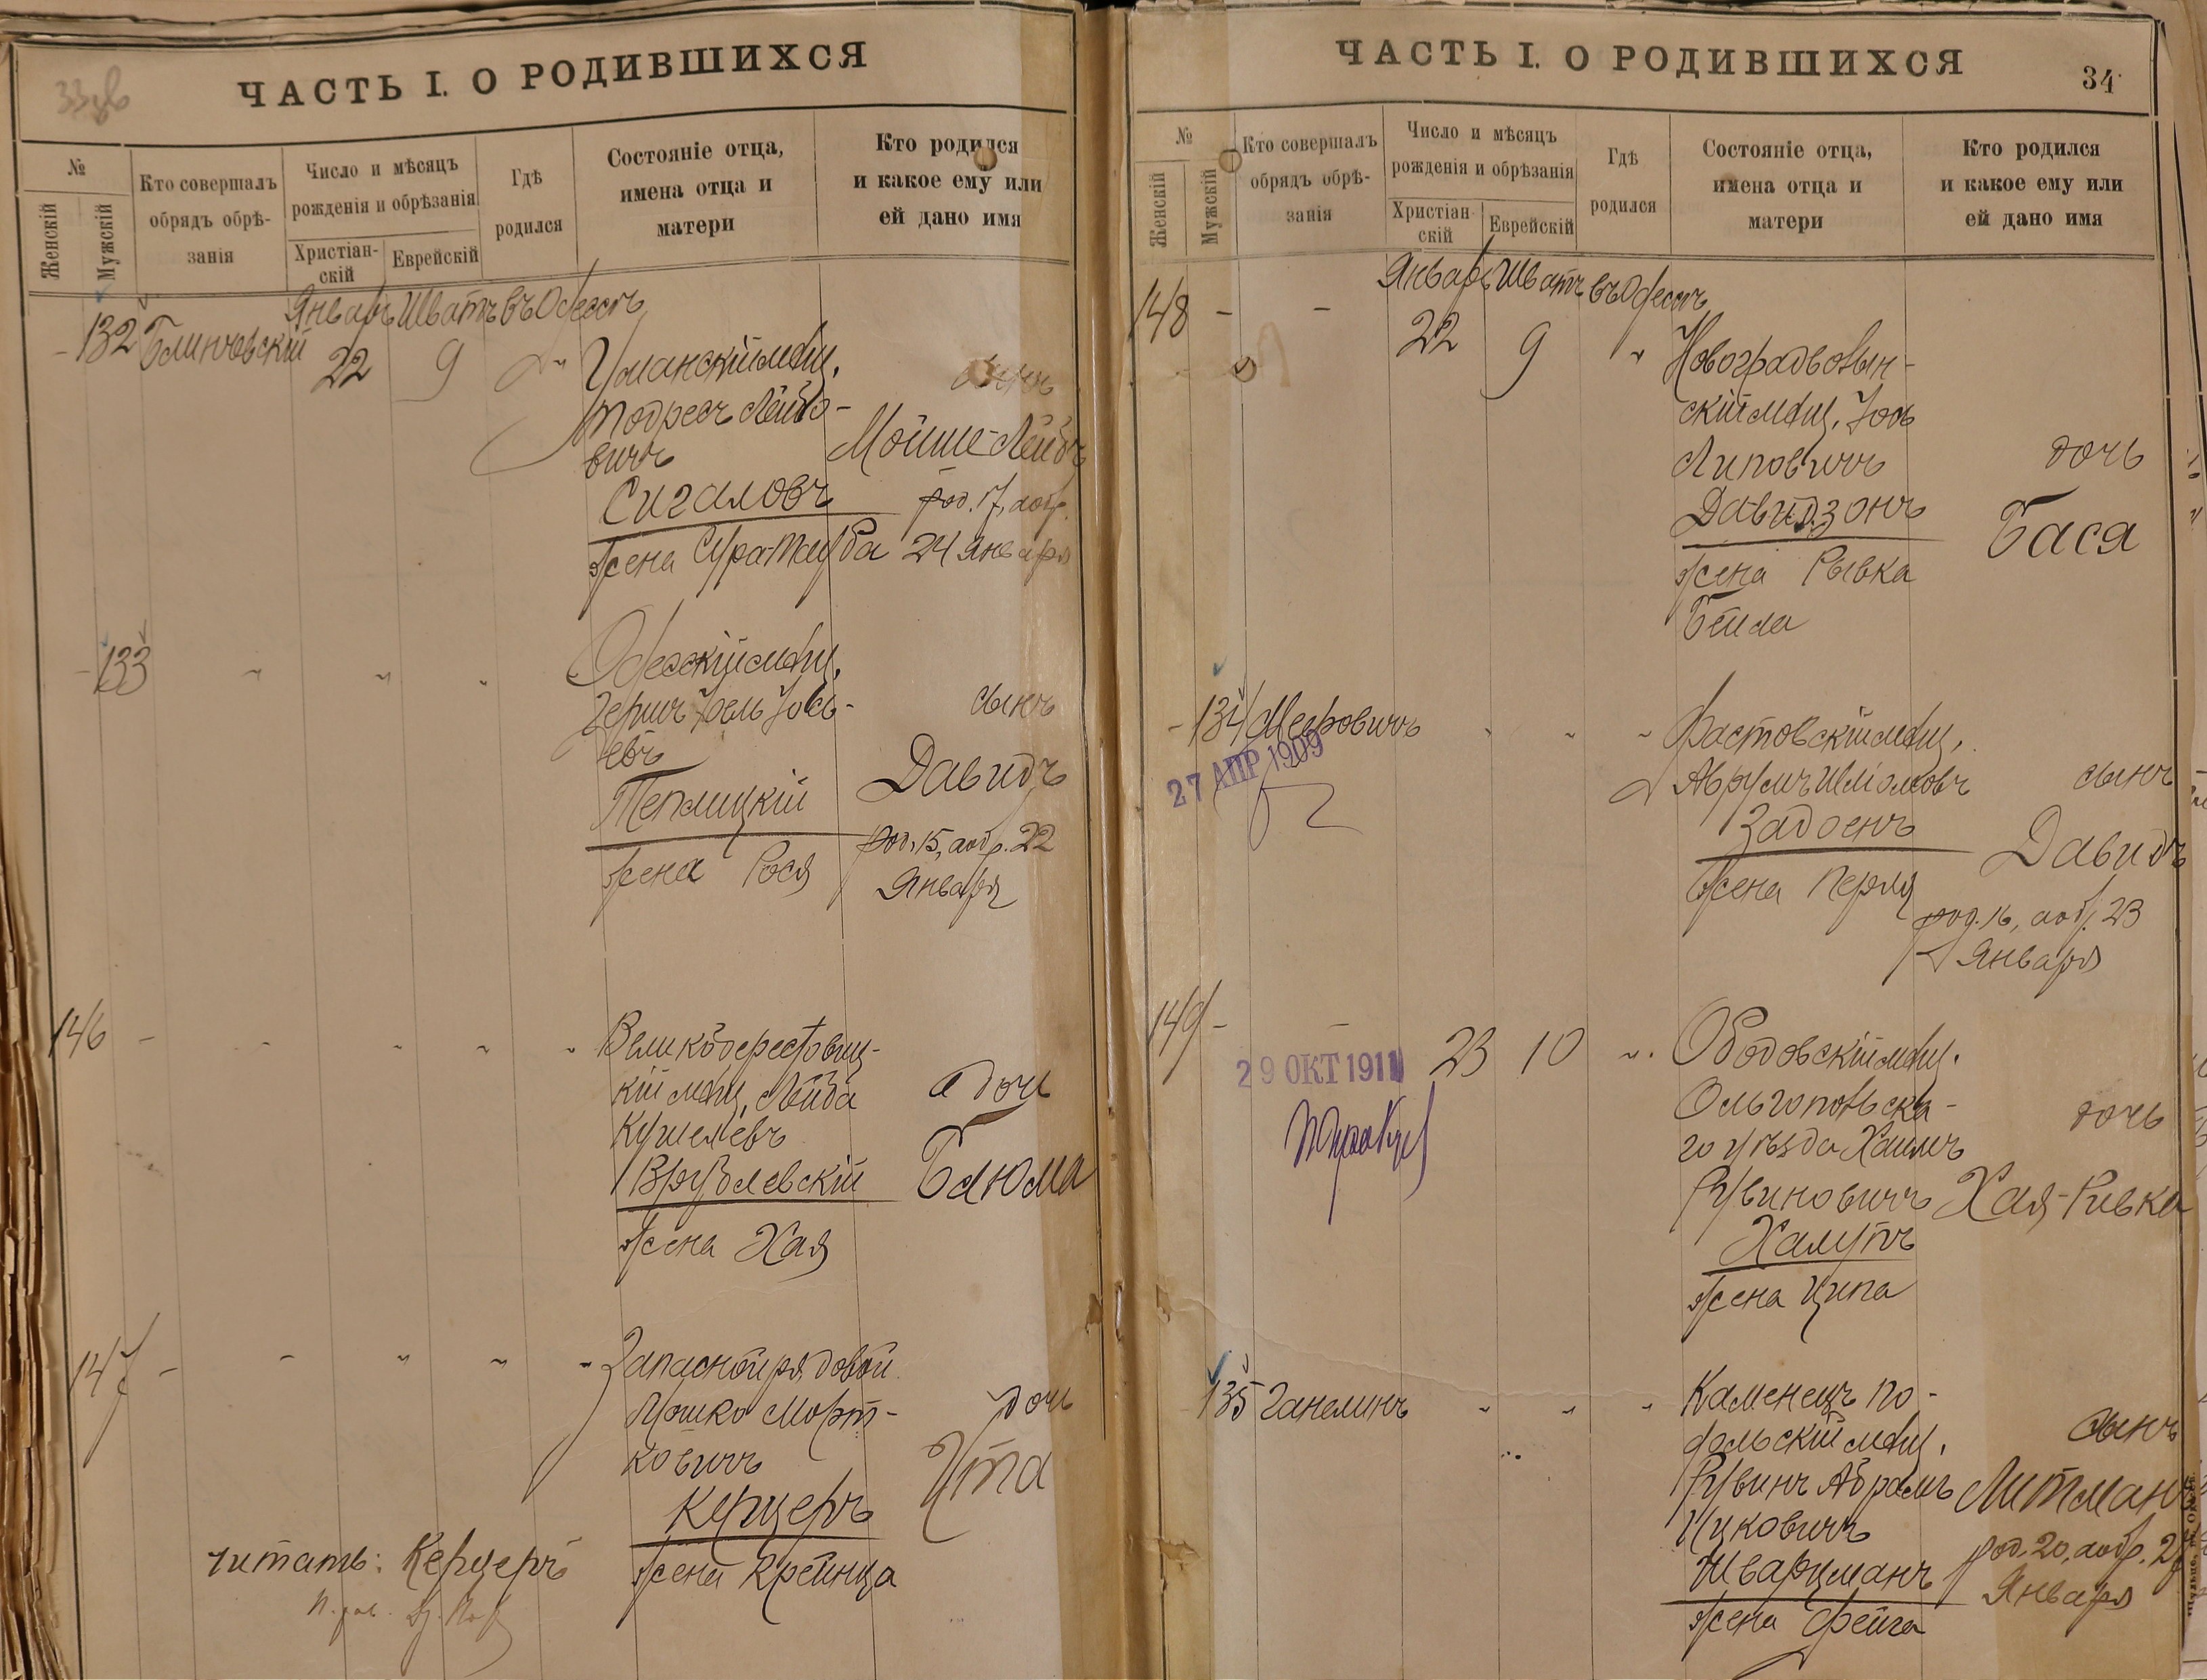 33об
ЧАСТЬ I. О РОДИВШИХСЯ
№
Женскій
Мужскій
Кто совершалъ
обрядъ обрѣ-
занія
Число и мѣсяцъ
рожденія и обрѣзанія
Христіан-
скій
Еврейскій
Гдѣ
родился
Состояніе отца,
имена отца и
матери
Кто родился
и какое ему или
ей дано имя
Январь Шватъ въ Одессѣ
132 Блинчевскій 22 9 " Уманскій мѣщ.
сынъ
Тодресъ Лейбо-
вичъ
Мойше-Лейбъ
Сигаловъ
род. 17, обр.
жена Сура-Тауба 24 января
- 133 " " " Одесскій мѣщ.
Гершъ Іоель Іось-
евъ
сынъ
Давидъ
Теплицкій
род. 15, обр. 22
жена Рося
Января
146 - - " " " Великоберестовиц-
кій мѣщ. Лейба
дочь
Кушелевъ
Врублевскій
Блюма
жена Хая
147 - - " " " Запасной рядовой
Мошко Морт-
ковичъ
дочь
Ита
Керцеръ
жена Крейнца
читать: Керцеръ
ЧАСТЬ I. О РОДИВШИХСЯ
34
№
Женскій
Мужскій
Кто совершалъ
обрядъ обрѣ-
занія
Число и мѣсяцъ
рожденія и обрѣзанія
Христіан-
скій
Еврейскій
Гдѣ
родился
Состояніе отца,
имена отца и
матери
Кто родился
и какое ему или
ей дано имя
Январь Шватъ въ Одессѣ
148 - - 22 9 " Новоградволын-
скій мѣщ. Іось
Липовичъ
дочь
Давидзонъ
Бася
жена Рывка
Бейла
- 134 Мееровичъ " " " Фастовскій мѣщ.
27 АПР 1909
Аврумъ Шліомовъ
сынъ
Задоенъ
Давидъ
жена Перля
род. 16, обр. 23
Января
149 - - 23 10 " Ободовскій мѣщ.
29 ОКТ 1911
Ольгопольска-
го уѣзда Хаимъ
дочь
Рувиновичъ
Хая-Ривка
Халупъ
жена Ципа
135 Ганелинъ " " " Каменецъ По-
дольскій мѣщ.
сынъ
Рувинъ Абрамъ
Литманъ
Ицковичъ
род. 20, обр. 27
Шварцманъ
Января
жена Фейга